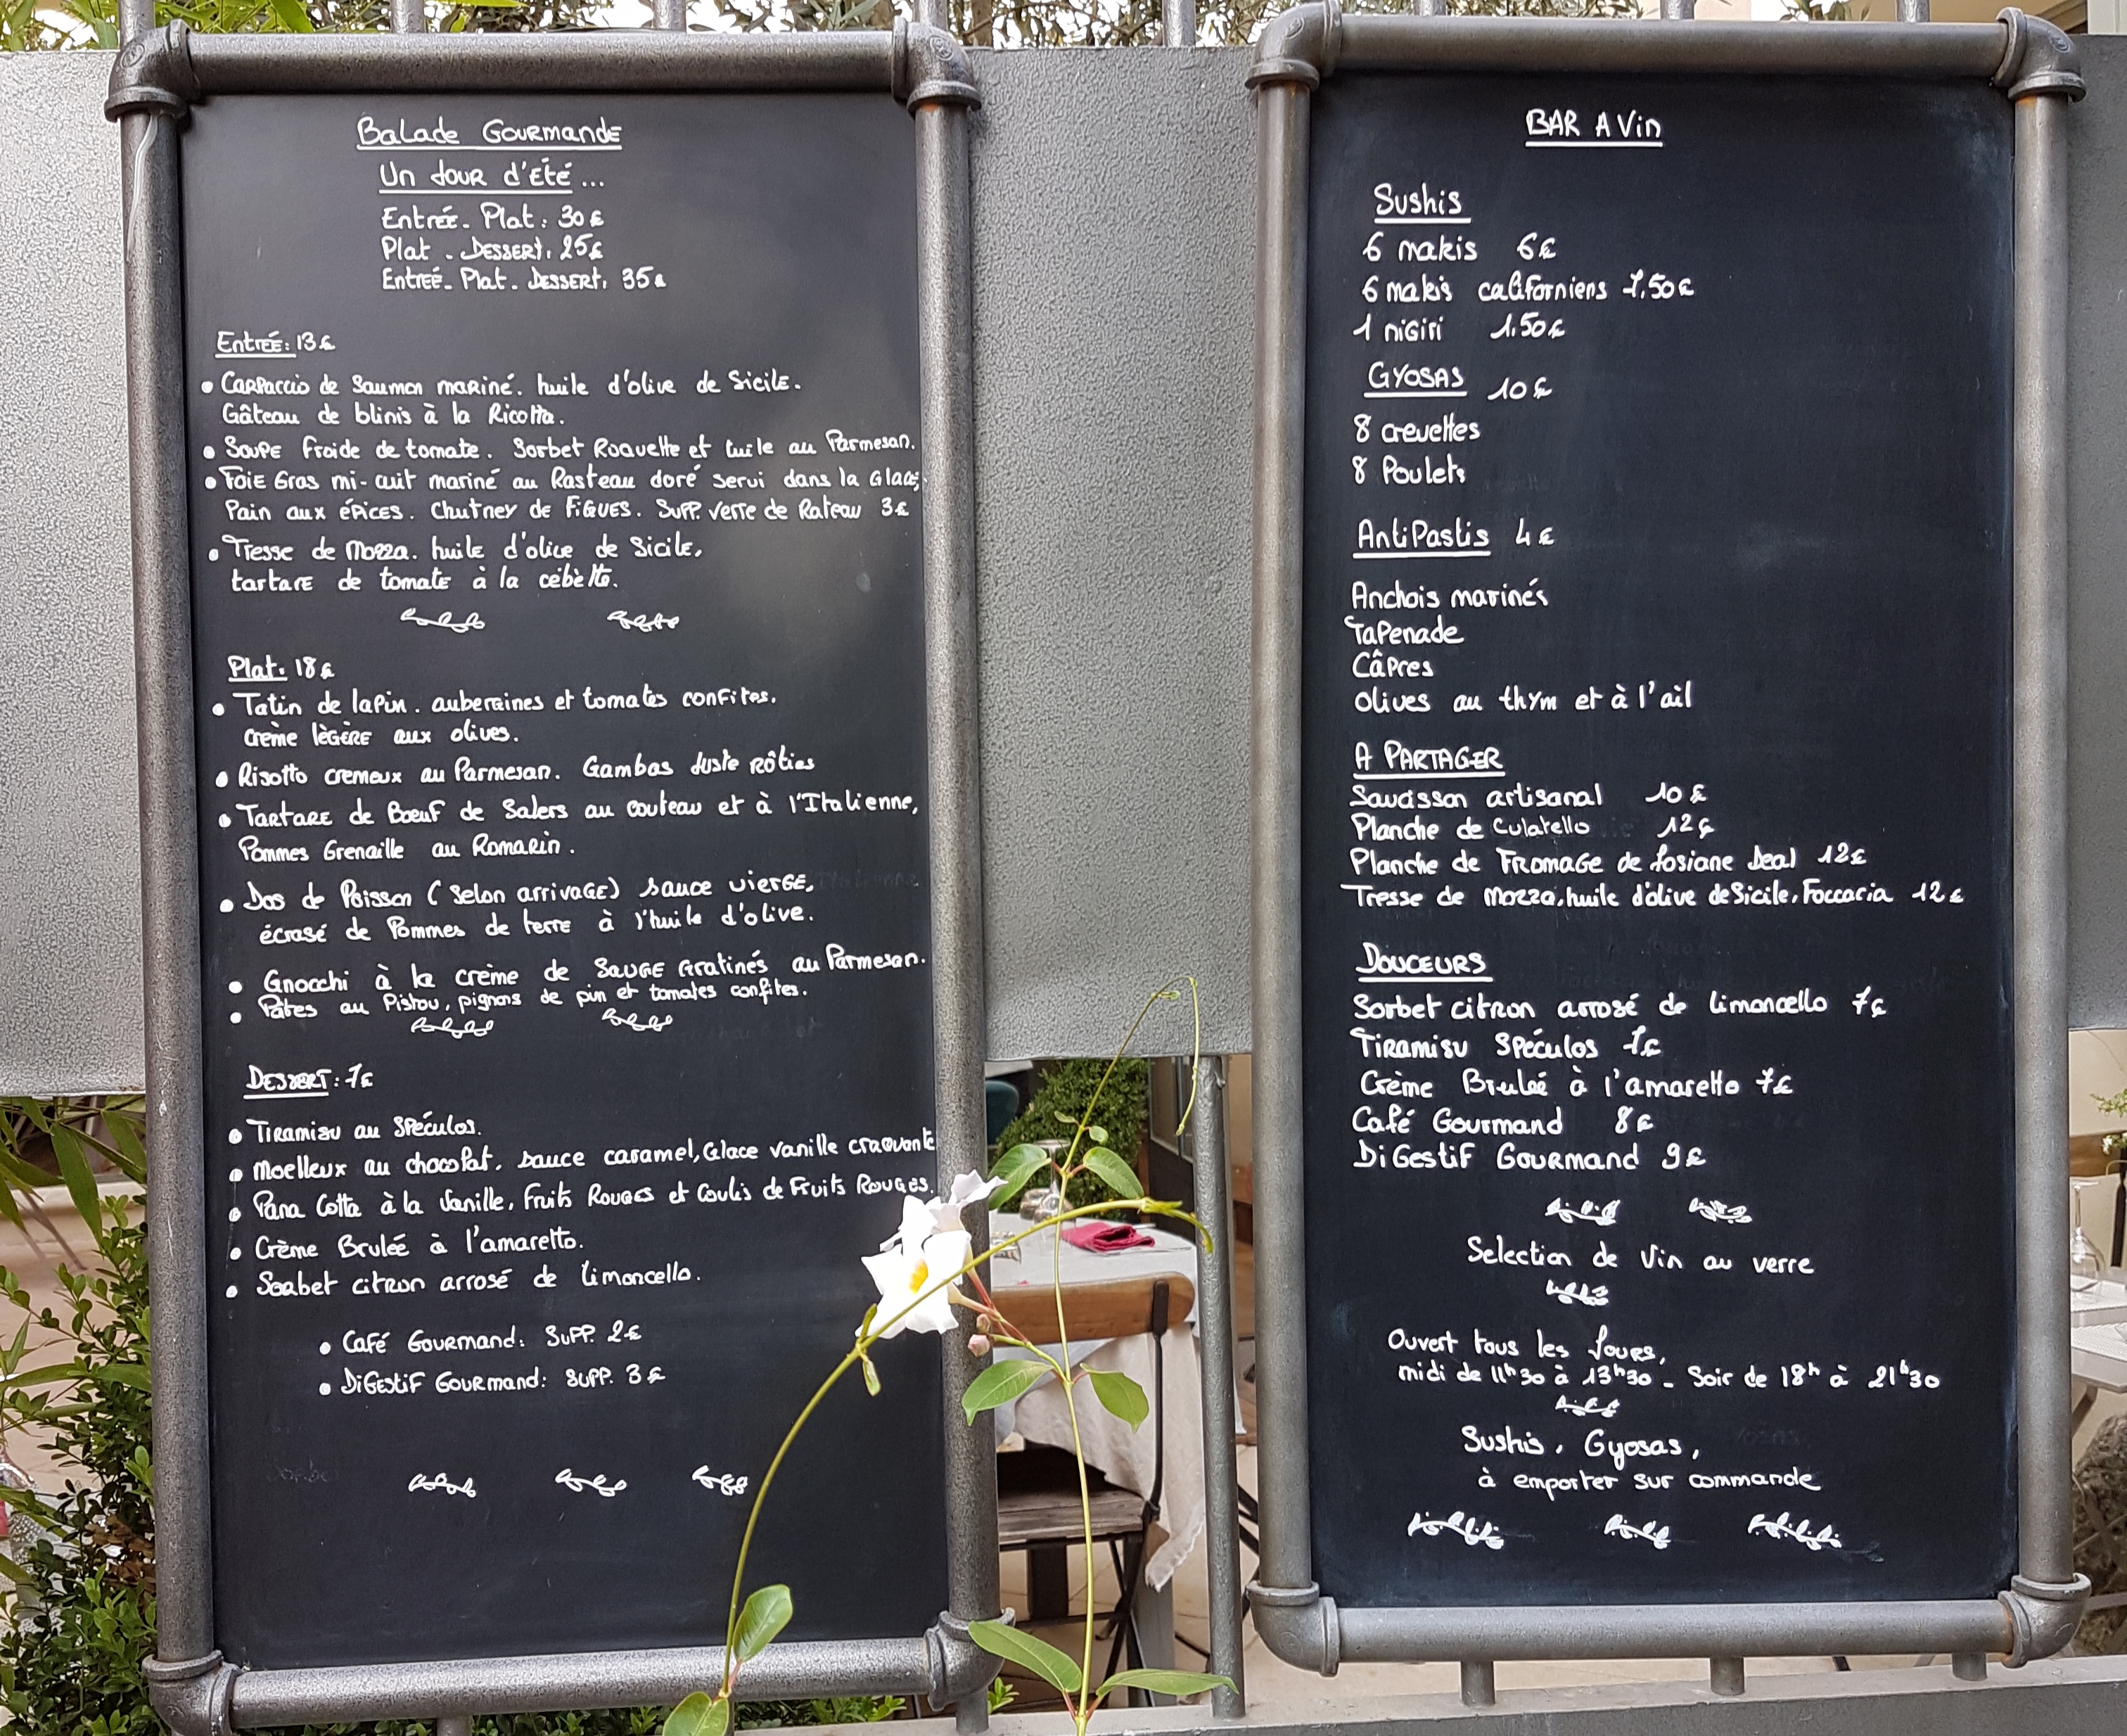 Balade Gourmande
Un Jour d'Eté...
Entrée. Plat: 30€
Plat - Dessert. 25€
Entreé. Plat. Dessert. 35€
Entrée: 13€
• Carpaccio de Saumon mariné. huile d'olive de Sicile.
Gâteau de blinis à la Ricotta.
• Soupe froide de tomate. Sorbet Roquette et tuile au Parmesan.
• Foie Gras mi-cuit mariné au Rasteau doré servi dans la Glace,
Pain aux épices. Chutney de Figues. Supp. verre de Rateau 3€
• Tresse de Mozza. huile d'olive de Sicile,
tartare de tomate à la cébètte.
Plat: 18€
• Tatin de lapin. aubergines et tomates confites.
crème lègère aux olives.
• Risotto cremeux au Parmesan. Gambas Juste rôties
• Tartare de Bœuf de Salers au couteau et à l'Italienne,
Pommes Grenaille au Romarin.
• Dos de Poisson (selon arrivage) sauce vierge,
écrasé de Pommes de terre à l'huile d'olive.
• Gnocchi à la crème de Sauge Gratinés au Parmesan.
• Pâtes au Pistou, pignons de pin et tomates confites.
Dessert: 7€
• Tiramisu au Spéculos.
• Moelleux au chocolat, sauce caramel, Glace vanille craquante
• Pana Cotta à la Vanille, Fruits Rouges et Coulis de Fruits Rouges.
• Crème Bruleé à l'amaretto.
• Sorbet citron arrosé de limoncello.
• Café Gourmand: Supp. 2€
• Digestif Gourmand: Supp. 3€
BAR A Vin
Sushis
6 makis 6€
6 makis californiens 7,50€
1 nigiri 1.50€
Gyosas 10€
8 crevettes
8 Poulets
AntiPastis 4€
Anchois marinés
Tapenade
Câpres
Olives au thym et à l'ail
A Partager
Saucisson artisanal 10€
Planche de Culatello 12€
Planche de Fromage de Josiane Deal 12€
Tresse de Mozza, huile d'olive de Sicile, Foccacia 12€
Douceurs
Sorbet citron arrosé de limoncello 7€
Tiramisu Spéculos 7€
Crème Bruleé à l'amaretto 7€
Café Gourmand 8€
Digestif Gourmand 9€
Selection de Vin au verre
Ouvert tous les Jours,
midi de 11h30 à 13h30 - Soir de 18h à 21h30
Sushis, Gyosas,
à emporter sur commande